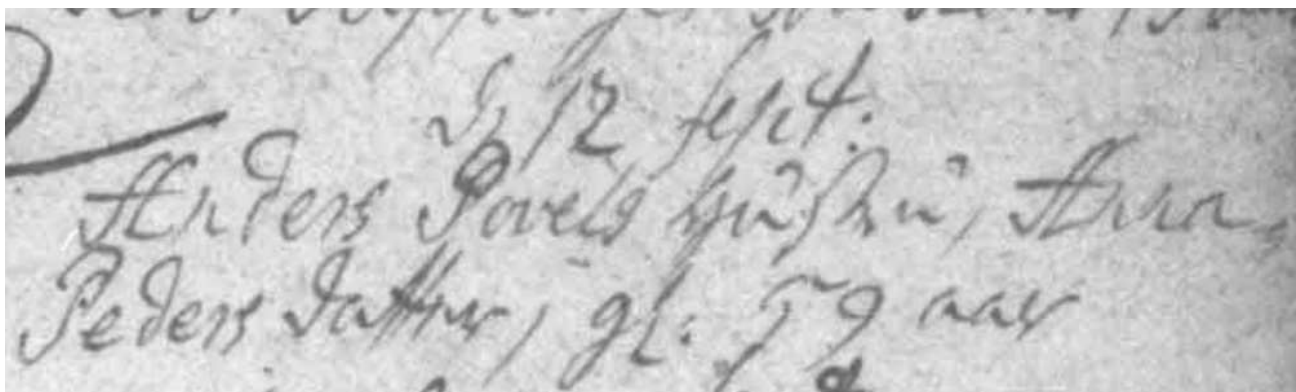 d. 12 Sept.
Anders Povels Hustru, Anna
Peders datter, gl. 59 aar